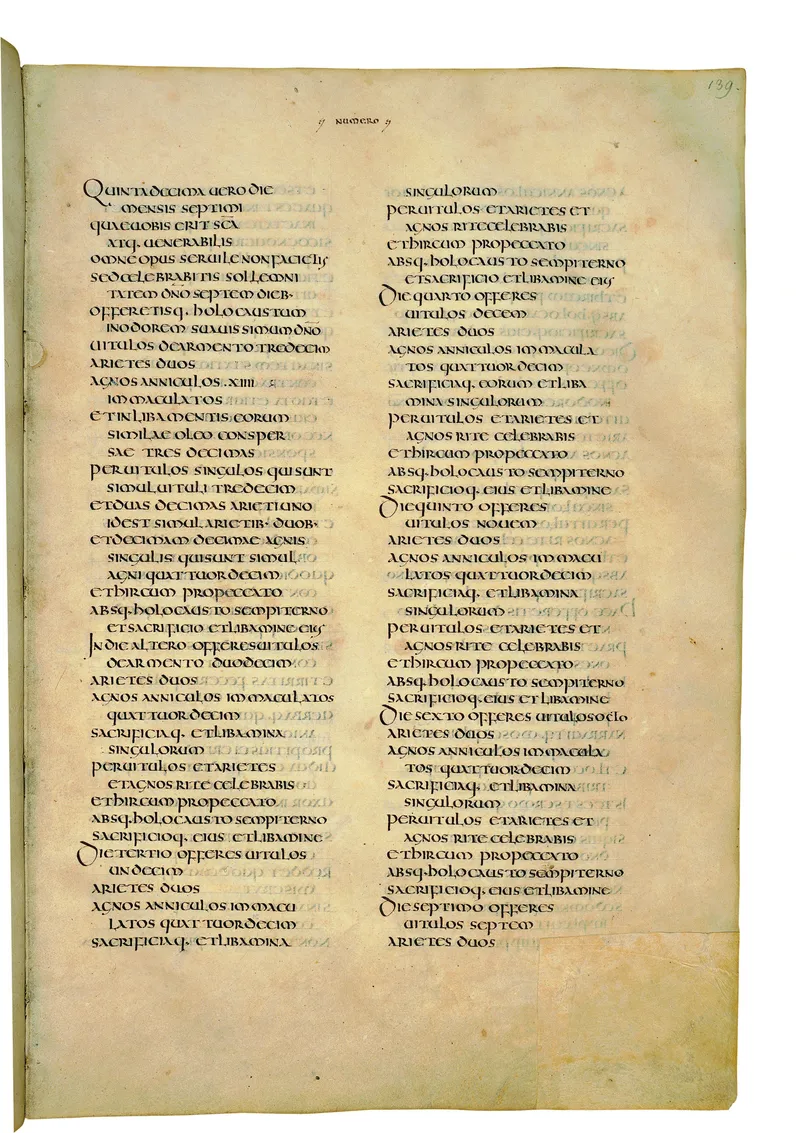 139.
NUMERO
QUINTA DECIMA UERO DIE
MENSIS SEPTIMI
QUAE UOBIS ERIT SC̅A
ATQ· UENERABILIS
OMNE OPUS SERUILE NON FACIETIS
SED CELEBRABITIS SOLLEMNI
TATEM DN̅O SEPTEM DIEB·
OFFERETISQ· HOLOCAUSTUM
IN ODOREM SUAUISSIMUM DN̅O
UITULOS DE ARMENTO TREDECIM
ARIETES DUOS
AGNOS ANNICULOS ·XIIII
IMMACULATOS
ET IN LIBAMENTIS EORUM
SIMILAE OLEO CONSPER
SAE TRES DECIMAS
PER UITULOS SINGULOS QUI SUNT
SIMUL UITULI TREDECIM
ET DUAS DECIMAS ARIETI UNO
ID EST SIMUL ARIETIB· DUOB·
ET DECIMAM DECIMAE AGNIS
SINGULIS QUI SUNT SIMUL
AGNI QUATTUORDECIM
ET HIRCUM PRO PECCATO
ABSQ· HOLOCAUSTO SEMPITERNO
ET SACRIFICIO ET LIBAMINE EIUS
IN DIE ALTERO OFFERES UITULOS
DE ARMENTO DUODECIM
ARIETES DUOS
AGNOS ANNICULOS IMMACULATOS
QUATTUORDECIM
SACRIFICIAQ· ET LIBAMINA
SINGULORUM
PER UITULOS ET ARIETES
ET AGNOS RITE CELEBRABIS
ET HIRCUM PRO PECCATO
ABSQ· HOLOCAUSTO SEMPITERNO
SACRIFICIOQ· EIUS ET LIBAMINE
DIE TERTIO OFFERES UITULOS
UNDECIM
ARIETES DUOS
AGNOS ANNICULOS IMMACU
LATOS QUATTUORDECIM
SACRIFICIAQ· ET LIBAMINA
SINGULORUM
PER UITULOS ET ARIETES ET
AGNOS RITE CELEBRABIS
ET HIRCUM PRO PECCATO
ABSQ· HOLOCAUSTO SEMPITERNO
ET SACRIFICIO ET LIBAMINE EIUS
DIE QUARTO OFFERES
UITULOS DECEM
ARIETES DUOS
AGNOS ANNICULOS IMMACULA
TOS QUATTUORDECIM
SACRIFICIAQ· EORUM ET LIBA
MINA SINGULORUM
PER UITULOS ET ARIETES ET
AGNOS RITE CELEBRABIS
ET HIRCUM PRO PECCATO
ABSQ· HOLOCAUSTO SEMPITERNO
SACRIFICIOQ· EIUS ET LIBAMINE
DIE QUINTO OFFERES
UITULOS NOUEM
ARIETES DUOS
AGNOS ANNICULOS IMMACU
LATOS QUATTUORDECIM
SACRIFICIAQ· ET LIBAMINA
SINGULORUM
PER UITULOS ET ARIETES ET
AGNOS RITE CELEBRABIS
ET HIRCUM PRO PECCATO
ABSQ· HOLOCAUSTO SEMPITERNO
SACRIFICIOQ· EIUS ET LIBAMINE
DIE SEXTO OFFERES UITULOS OCTO
ARIETES DUOS
AGNOS ANNICULOS IMMACULA
TOS QUATTUORDECIM
SACRIFICIAQ· ET LIBAMINA
SINGULORUM
PER UITULOS ET ARIETES ET
AGNOS RITE CELEBRABIS
ET HIRCUM PRO PECCATO
ABSQ· HOLOCAUSTO SEMPITERNO
SACRIFICIOQ· EIUS ET LIBAMINE
DIE SEPTIMO OFFERES
UITULOS SEPTEM
ARIETES DUOS